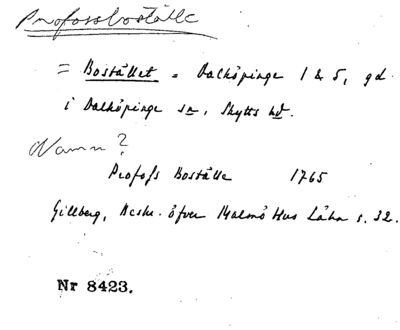 Profossboställe
= Bostället = Dalköpinge 1 & 5, gd
i Dalköpinge sn, Skytts hd.
Namn?
Profoss Boställe 1765
Gillberg, Beskr. öfver Malmö Hus Lähn s. 32.
Nr 8423.